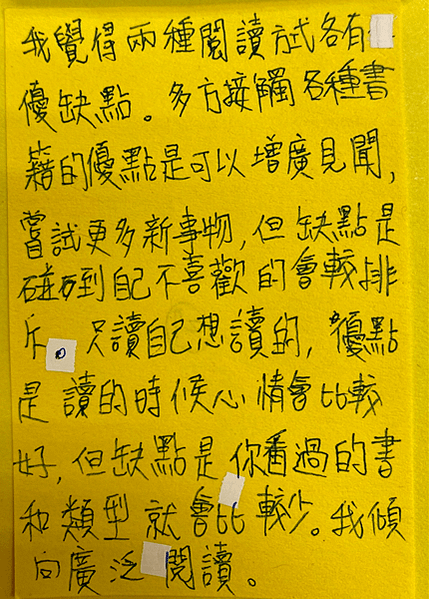 我覺得兩種閱讀方式各有
優缺點。多方接觸各種書
籍的優點是可以增廣見聞,
嘗試更多新事物,但缺點是
碰到自己不喜歡的會較排
斥。只讀自己想讀的,優點
是讀的時候心情會比較
好,但缺點是你看過的書
和類型就會比較少。我傾
向廣泛閱讀。